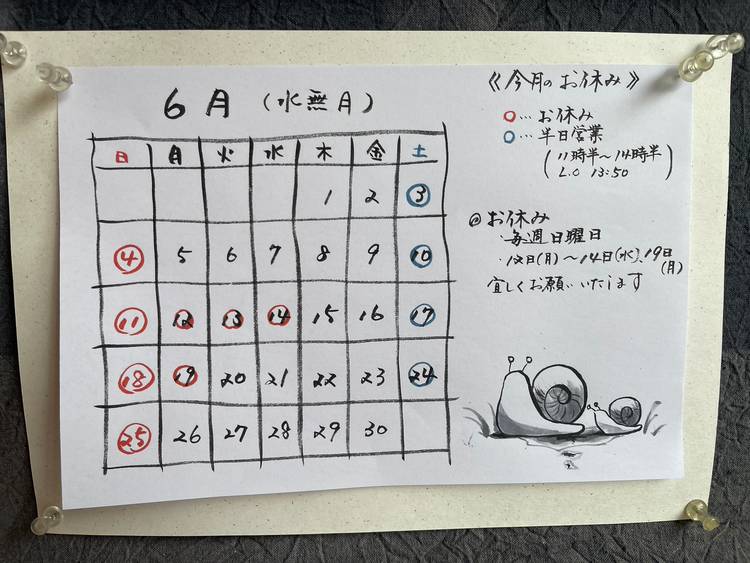 6月（水無月）
日 月 火 水 木 金 土
1 2 3
4 5 6 7 8 9 10
11 12 13 14 15 16 17
18 19 20 21 22 23 24
25 26 27 28 29 30
《今月のお休み》
○…お休み
○…半日営業
(11時半〜14時半
L.O 13:50)
◎お休み
・毎週日曜日
・12日(月)〜14日(水)、19日
(月)
宜しくお願いいたします